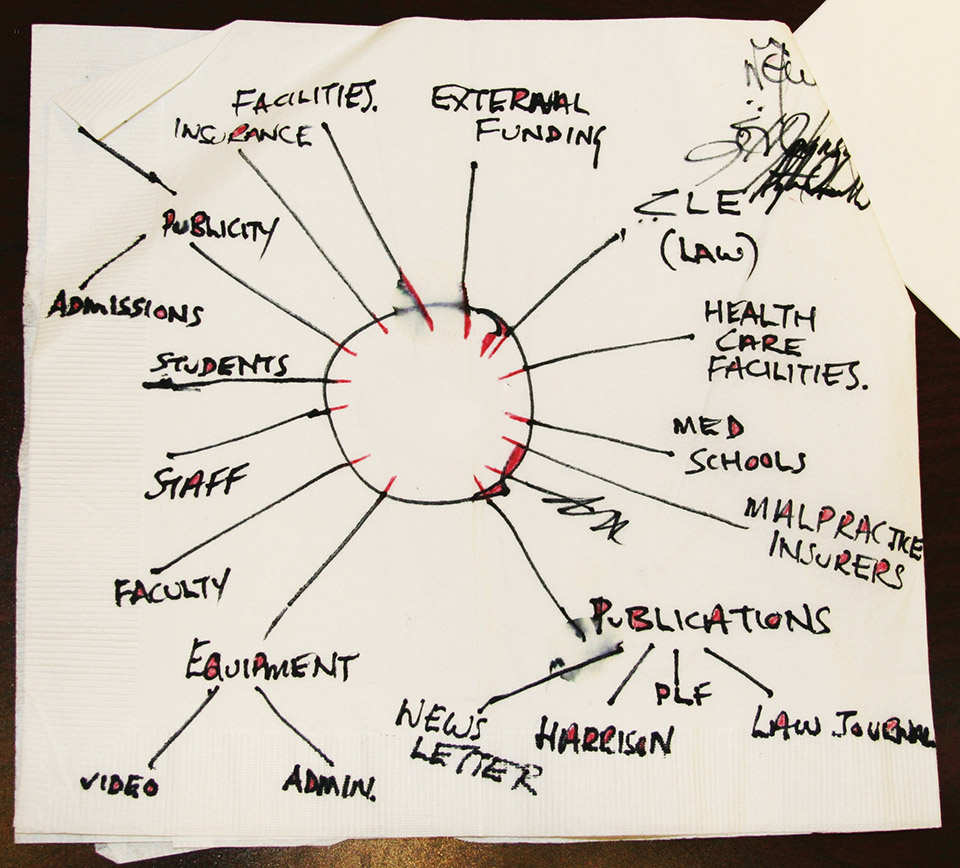 NEW
FACILITIES.
INSURANCE
EXTERNAL
FUNDING
CLE
(LAW)
PUBLICITY
ADMISSIONS
STUDENTS
STAFF
FACULTY
HEALTH
CARE
FACILITIES.
MED
SCHOOLS
MALPRACTICE
INSURERS
PUBLICATIONS
NEWS
LETTER
HARRISON
PLF
LAW JOURNAL
EQUIPMENT
VIDEO
ADMIN.